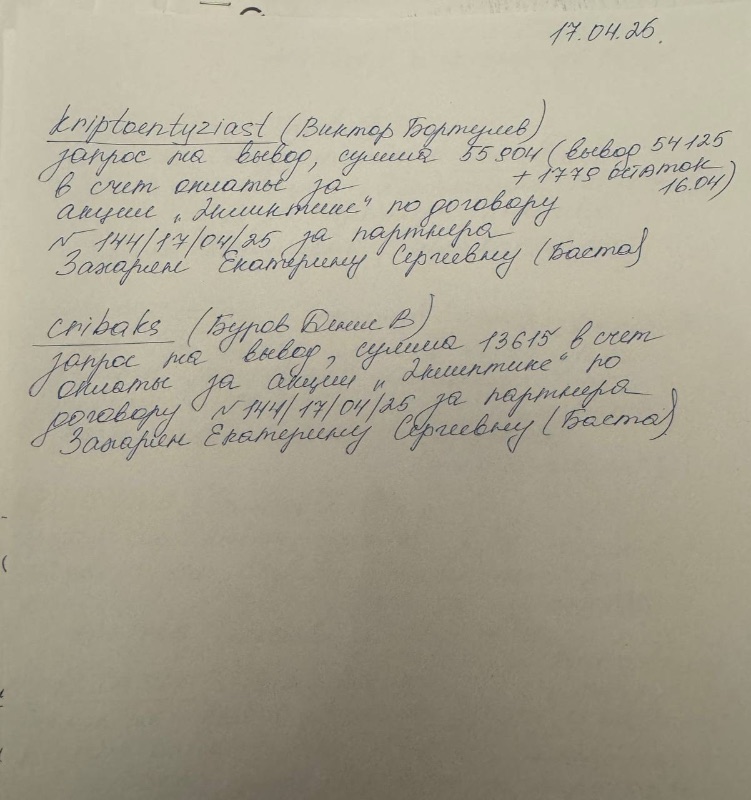 17.04.25.
kriptoentyziast (Виктор Бортулев)
запрос на вывод, сумма 55904 (вывод 54125
+ 1779 остаток
16.04)
в счет оплаты за
акции „Экмиктике“ по договору
№ 144/17/04/25 за партнера
Захарян Екатерину Сергеевну (Баста)
cnibaks (Буров Денис В)
запрос на вывод, сумма 13615 в счет
оплаты за акции „ “ по
договору № 144/17/04/25 за партнера
Захарян Екатерину Сергеевну (Баста)